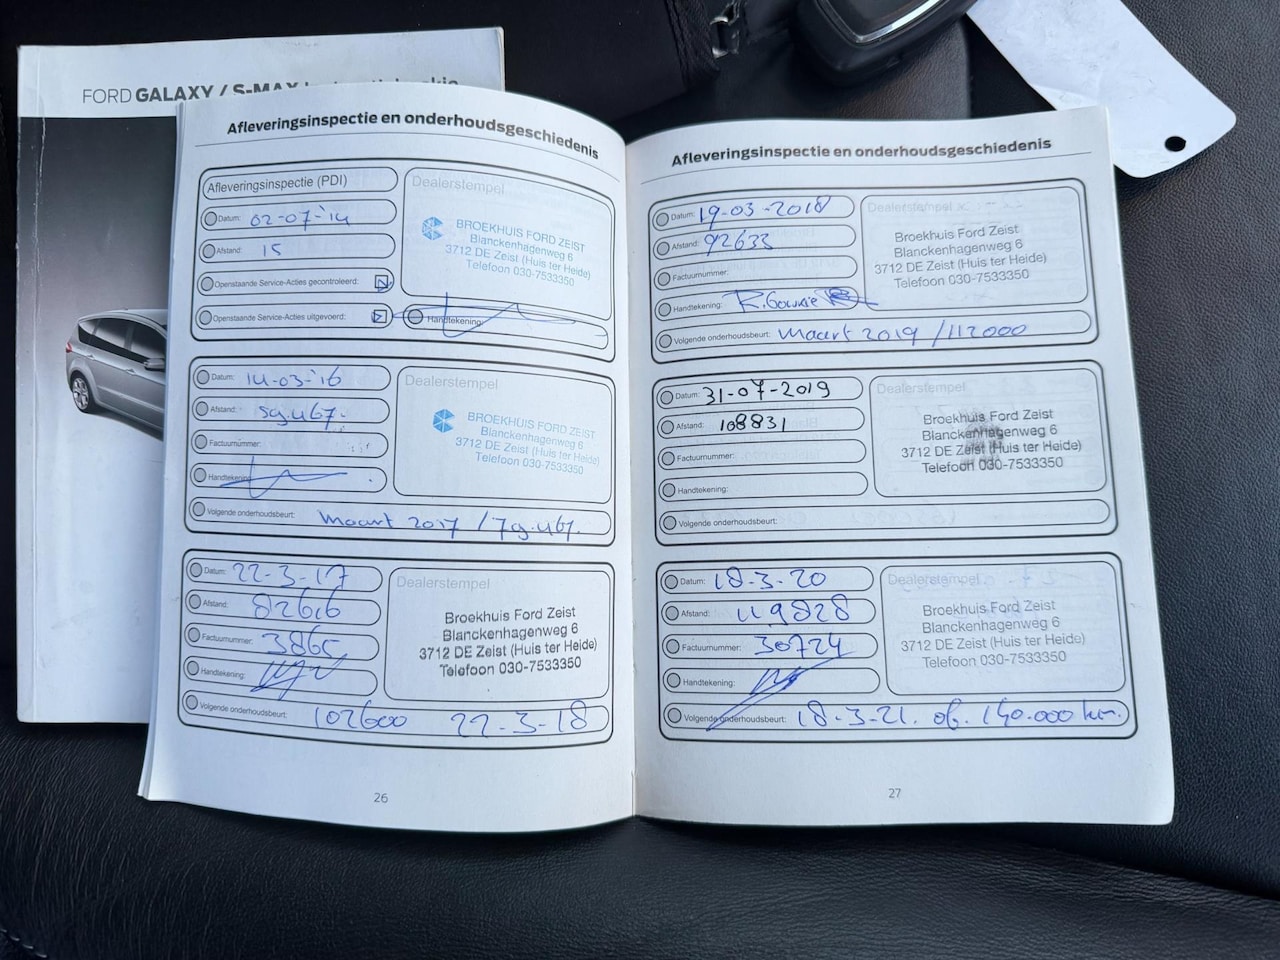 FORD GALAXY / S-MAX
Afleveringsinspectie en onderhoudsgeschiedenis
Afleveringsinspectie (PDI)
Datum: 02-07-'14
Afstand: 15
Openstaande Service-Acties gecontroleerd:
Openstaande Service-Acties uitgevoerd:
Dealerstempel
BROEKHUIS FORD ZEIST
Blanckenhagenweg 6
3712 DE Zeist (Huis ter Heide)
Telefoon 030-7533350
Handtekening:
Datum: 14-03-'16
Afstand: 59.467.
Factuurnummer:
Handtekening:
Dealerstempel
BROEKHUIS FORD ZEIST
Blanckenhagenweg 6
3712 DE Zeist (Huis ter Heide)
Telefoon 030-7533350
Volgende onderhoudsbeurt: Maart 2017 / 79.467.
Datum: 22-3-17
Afstand: 82616
Factuurnummer:
Handtekening:
Dealerstempel
Broekhuis Ford Zeist
Blanckenhagenweg 6
3712 DE Zeist (Huis ter Heide)
Telefoon 030-7533350
Volgende onderhoudsbeurt: 102600 22-3-18
26
Afleveringsinspectie en onderhoudsgeschiedenis
Datum: 19-03-2018
Afstand: 92633
Factuurnummer:
Handtekening:
Dealerstempel
Broekhuis Ford Zeist
Blanckenhagenweg 6
3712 DE Zeist (Huis ter Heide)
Telefoon 030-7533350
Volgende onderhoudsbeurt: Maart 2019 / 112000
Datum: 31-07-2019
Afstand: 108831
Factuurnummer:
Handtekening:
Dealerstempel
Broekhuis Ford Zeist
Blanckenhagenweg 6
3712 DE Zeist (Huis ter Heide)
Telefoon 030-7533350
Volgende onderhoudsbeurt:
Datum: 18-3-20
Afstand: 119828
Factuurnummer: 30724
Handtekening:
Dealerstempel
Broekhuis Ford Zeist
Blanckenhagenweg 6
3712 DE Zeist (Huis ter Heide)
Telefoon 030-7533350
Volgende onderhoudsbeurt: 18-3-21. of. 140.000 km.
27